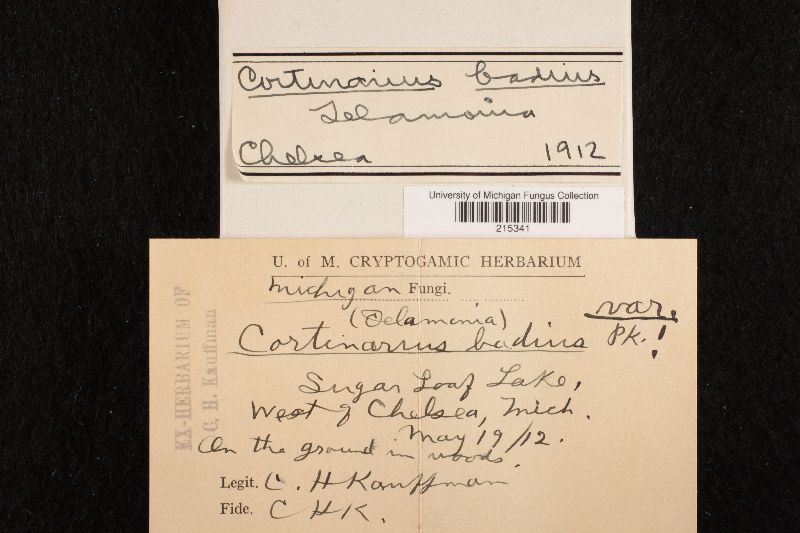 Cortinarius badius
Telamonia
Chelsea 1912
University of Michigan Fungus Collection
215341
U. of M. CRYPTOGAMIC HERBARIUM
Michigan Fungi.
(Telamonia) var.
Cortinarius badius Pk.!
Sugar Loaf Lake,
West of Chelsea, Mich.
May 19/12.
On the ground in woods.
Legit. C. H Kauffman
Fide. C H K.
EX-HERBARIUM OF
C. H. Kauffman